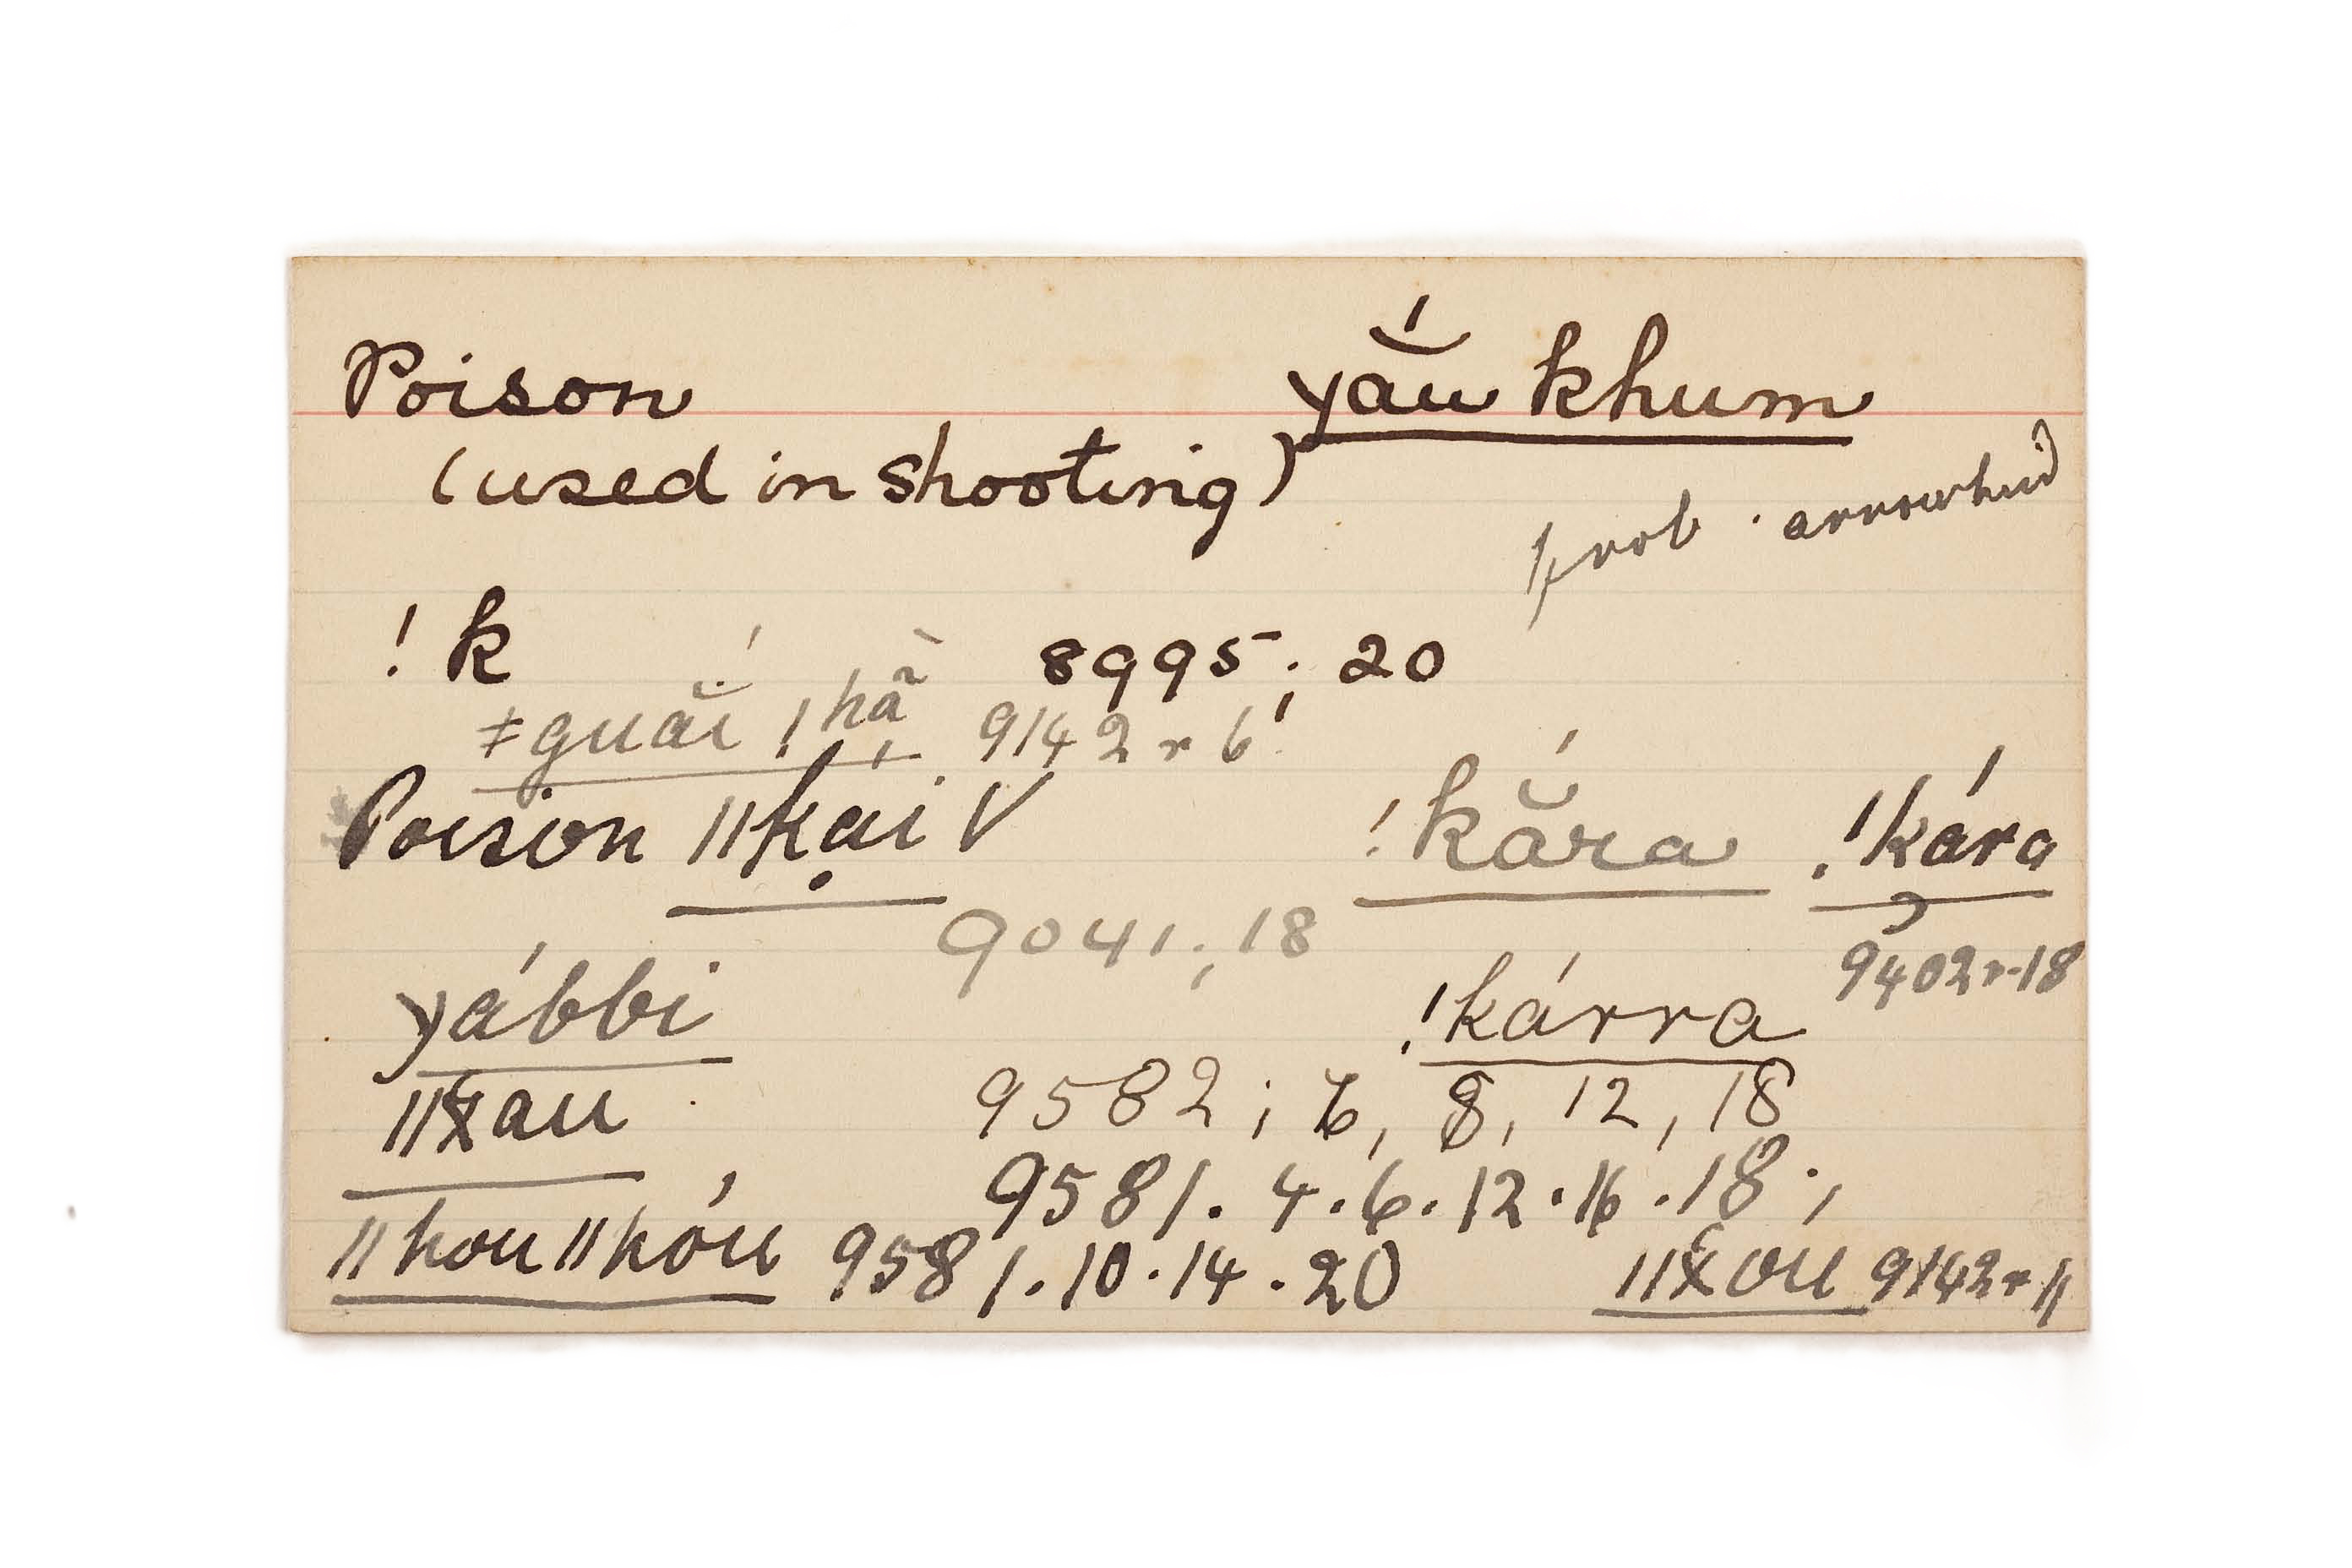 Poison yaŭ́ khum
(used in shooting)
prob. arrowhead
! k 8995; 20
ǂguaĭ́ !hã̀ 9142 r 6'
Poison ǁkại V !kắra !kára
9041; 18 9402 r. 18
yábbi !kárra
ǁx̆au 9582; 6, 8, 12, 18
9581. 4. 6. 12. 16. 18.,
ǁhouǁhóu 9581. 10. 14. 20 ǁx̆ou 9142 r 11